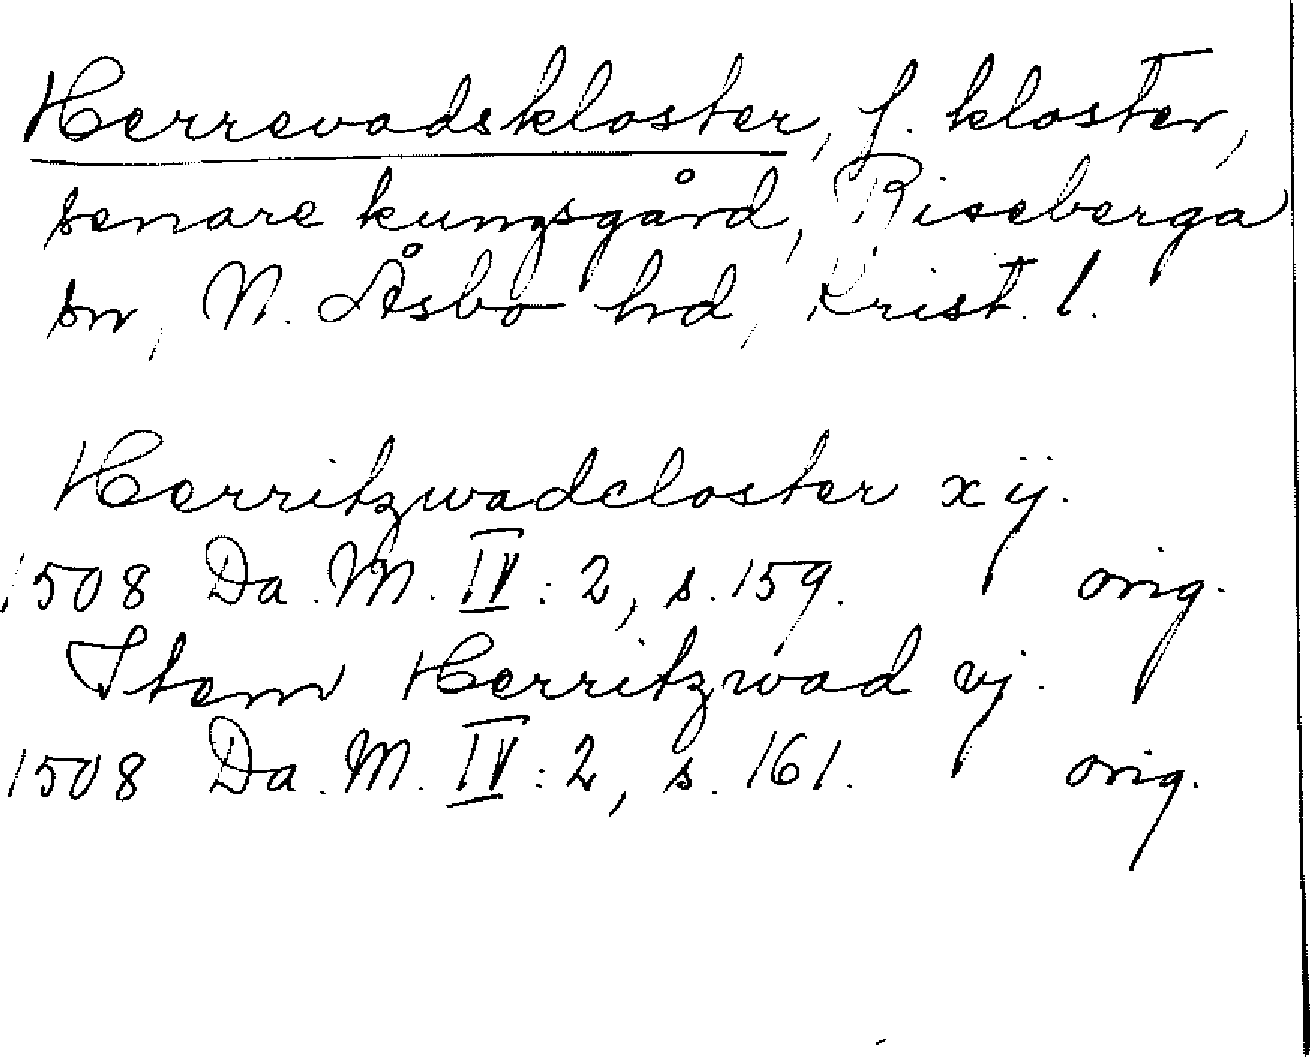 Herrevadskloster, f. kloster,
senare kungsgård, Riseberga
sn, N. Åsbo hd, Krist. l.
Herritzwadcloster xij.
1508 Da. M. IV: 2, s. 159. orig.
Item Herritzwad vj.
1508 Da. M. IV: 2, s. 161. orig.